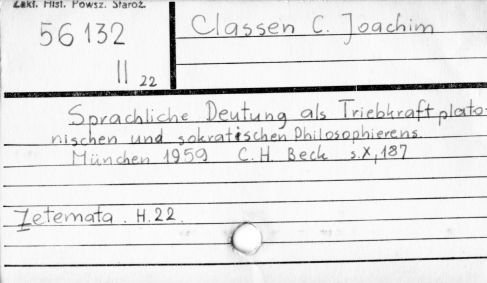 Zakł. Hist. Powsz. Staroż.
56132
II 22
Classen C. Joachim
Sprachliche Deutung als Triebkraft plato-
nischen und sokratischen Philosophierens.
München 1959 C.H. Beck s.X,187
Zetemata. H.22.